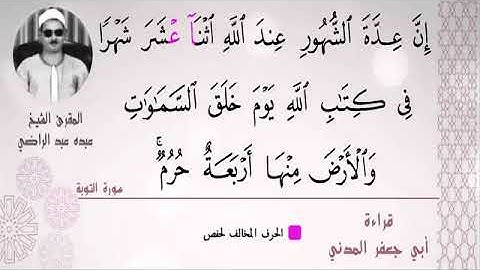 إِنَّ عِدَّةَ ٱلشُّهُورِ عِندَ ٱللَّهِ ٱثْنَآ عْشَرَ شَهْرًا
فِى كِتَٰبِ ٱللَّهِ يَوْمَ خَلَقَ ٱلسَّمَٰوَٰتِ
وَٱلْأَرْضَ مِنْهَا أَرْبَعَةٌ حُرُمٌۚ
المقرئ الشيخ
عبده عبد الراضي
سورة التوبة
قراءة
أبي جعفر المدني
الحرف المخالف لحفص